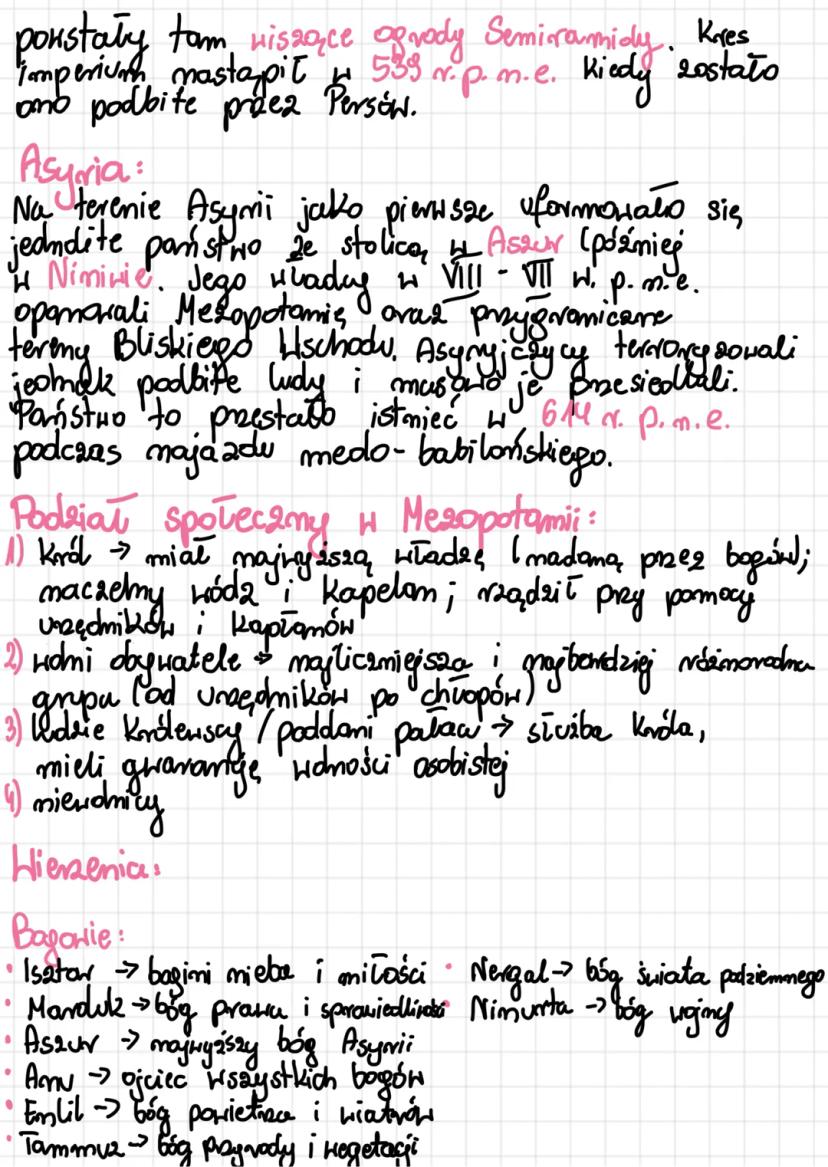 powstały tam wiszące ogrody Semiramidy. Kres
imperium nastąpił w 539 r. p. n. e. kiedy zostało
ono podbite przez Persów.
Asyria:
Na terenie Asyrii jako pierwsze uformowało się
jednolite państwo ze stolicą w Aszur (później
w Niniwie. Jego władcy w VIII - VII w. p. n. e.
opanowali Mezopotamię oraz przygraniczne
tereny Bliskiego Wschodu. Asyryjczycy terroryzowali
jednak podbite ludy i masowo je przesiedlali.
Państwo to przestało istnieć w 614 r. p. n. e.
podczas najazdu medo-babilońskiego.
Podział społeczny w Mezopotamii:
1) Król → miał najwyższą władzę (nadaną przez bogów);
naczelny wódz i kapłan; rządził przy pomocy
urzędników i kapłanów
2) wolni obywatele → najliczniejsza i najbardziej różnorodna
grupa (od urzędników po chłopów)
3) ludzie królewscy / poddani pałacu → służba króla,
mieli gwarancję wolności osobistej
4) niewolnicy
Wierzenia:
Bogowie:
• Isztar → bogini nieba i miłości • Nergal → bóg świata podziemnego
• Marduk → bóg prawa i sprawiedliwości Ninurta → bóg wojny
• Aszur → najwyższy bóg Asyrii
• Anu → ojciec wszystkich bogów
• Enlil → bóg powietrza i wiatrów
• Tammuz → bóg przyrody i wegetacji